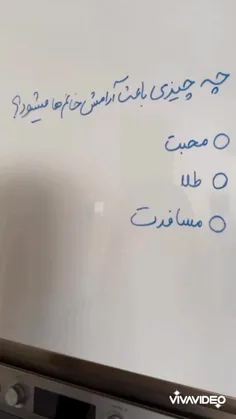 چه چیزی باعث آرامش خانم‌ها میشود؟
محبت
طلا
مسافرت
VIVAVIDEO